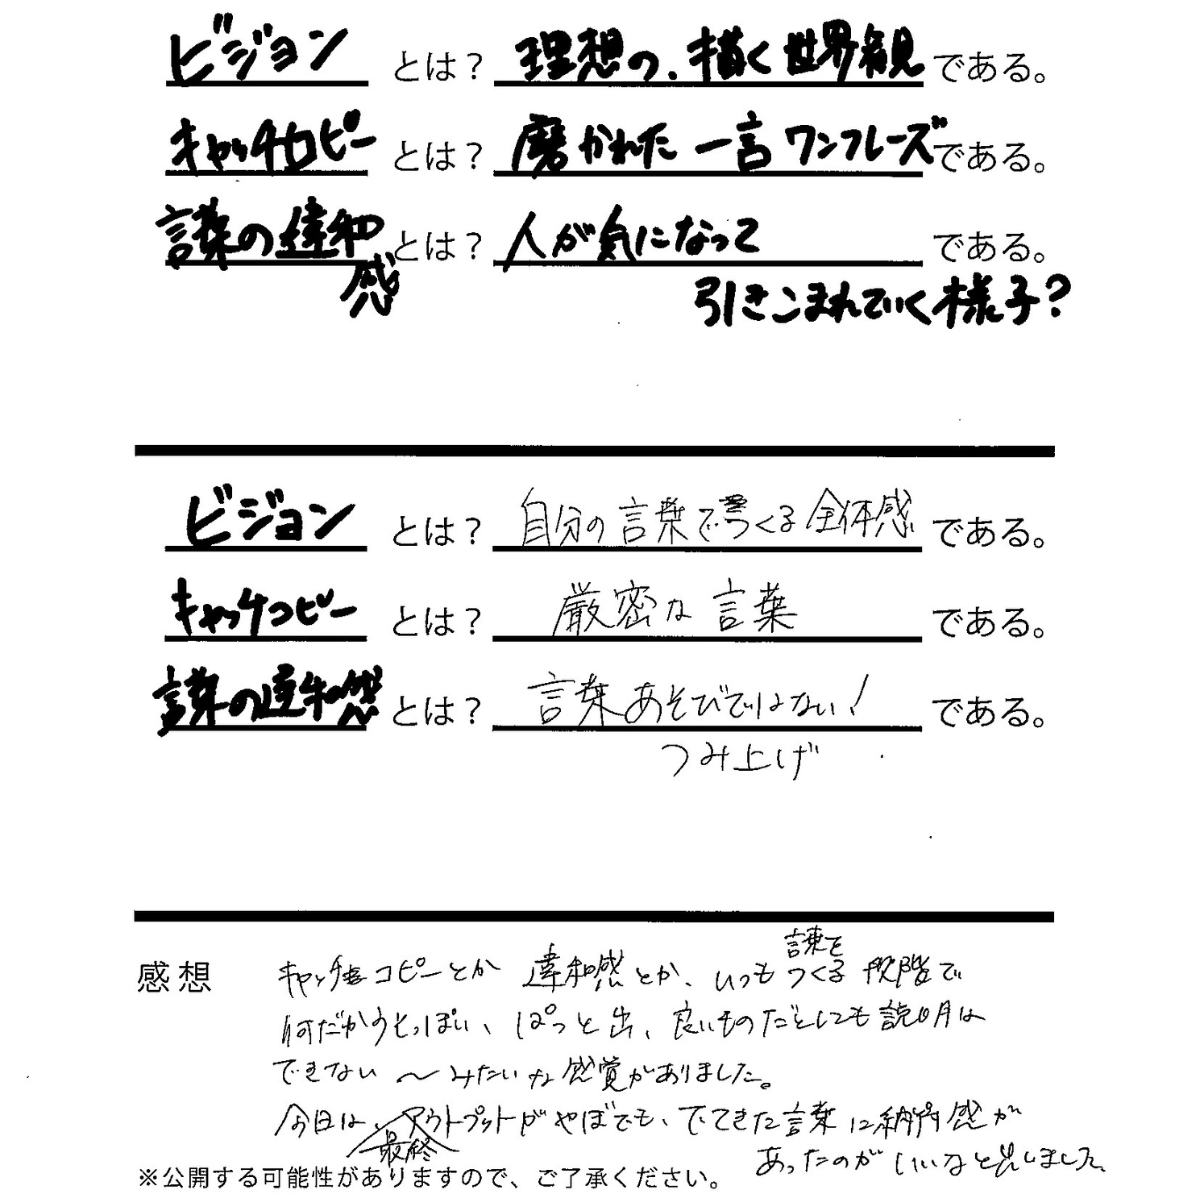 ビジョン とは？ 理想の、描く世界観 である。
キャッチコピー とは？ 磨かれた一言ワンフレーズ である。
言葉の違和感 とは？ 人が気になって である。
引きこまれていく様子？
ビジョン とは？ 自分の言葉でつくる全体感 である。
キャッチコピー とは？ 厳密な言葉 である。
言葉の違和感 とは？ 言葉あそびではない！ である。
つみ上げ
感想 キャッチコピーとか 違和感とか、いつも言葉をつくる段階で
何だかうそっぽい、ぱっと出、良いものだとしても説明は
できない 〜みたいな感覚がありました。
今日は、最終アウトプットがやぼでも、でてきた言葉に納得感が
あったのがいいなと思いました。
※公開する可能性がありますので、ご了承ください。